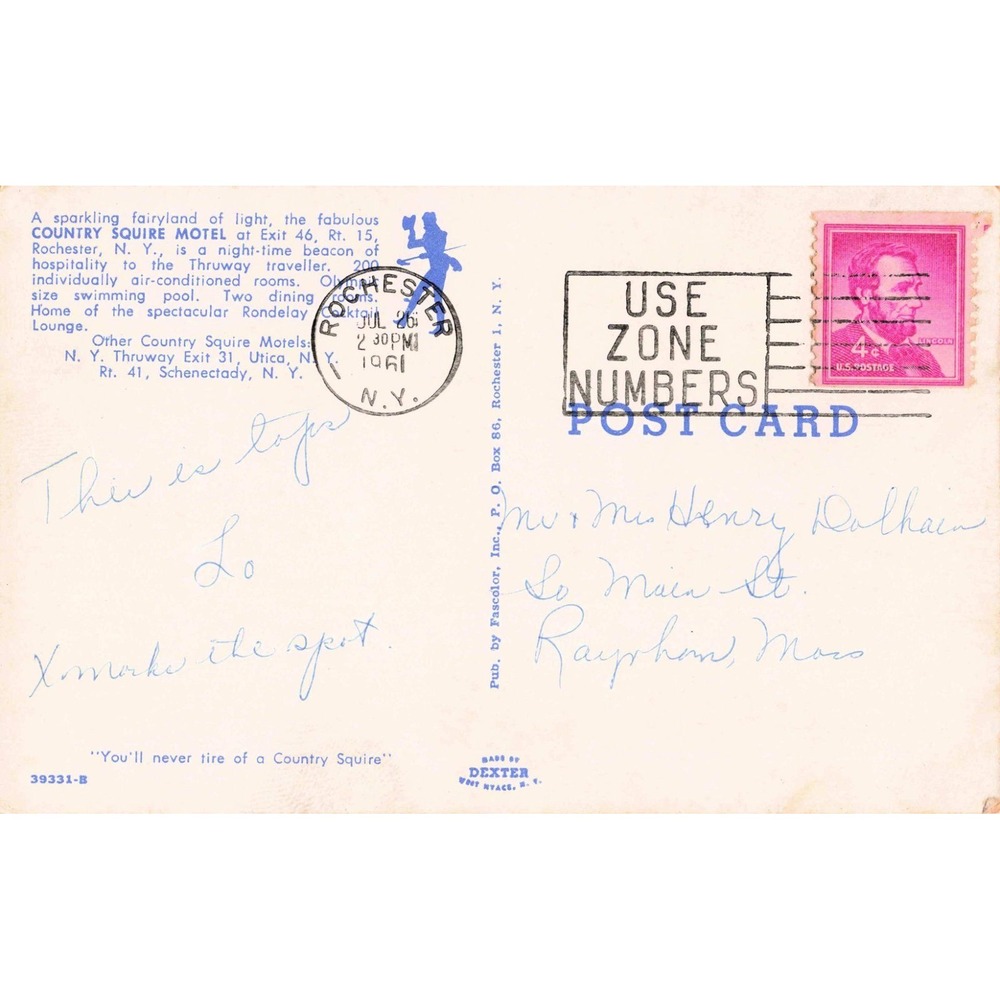 A sparkling fairyland of light, the fabulous
COUNTRY SQUIRE MOTEL at Exit 46, Rt. 15,
Rochester, N. Y., is a night-time beacon of
hospitality to the Thruway traveller. 200
individually air-conditioned rooms. Olympic
size swimming pool. Two dining rooms.
Home of the spectacular Rondelay Cocktail
Lounge.
Other Country Squire Motels:
N. Y. Thruway Exit 31, Utica, N. Y.
Rt. 41, Schenectady, N. Y.
ROCHESTER
JUL 26
2 30 PM
1961
N.Y.
This is tops
Lo
X marks the spot.
"You'll never tire of a Country Squire"
39331-B
Pub. by Fascolor, Inc., P. O. Box 86, Rochester 1, N. Y.
MADE BY
DEXTER
WEST NYACK, N. Y.
USE
ZONE
NUMBERS
4¢
LINCOLN
U.S. POSTAGE
POST CARD
Mr + Mrs Henry
So Main St.
Raynham, Mass